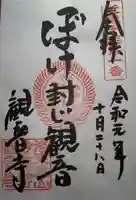 奉拝
令和元年
十月二十八日
ぼけ封じ観音
観音寺